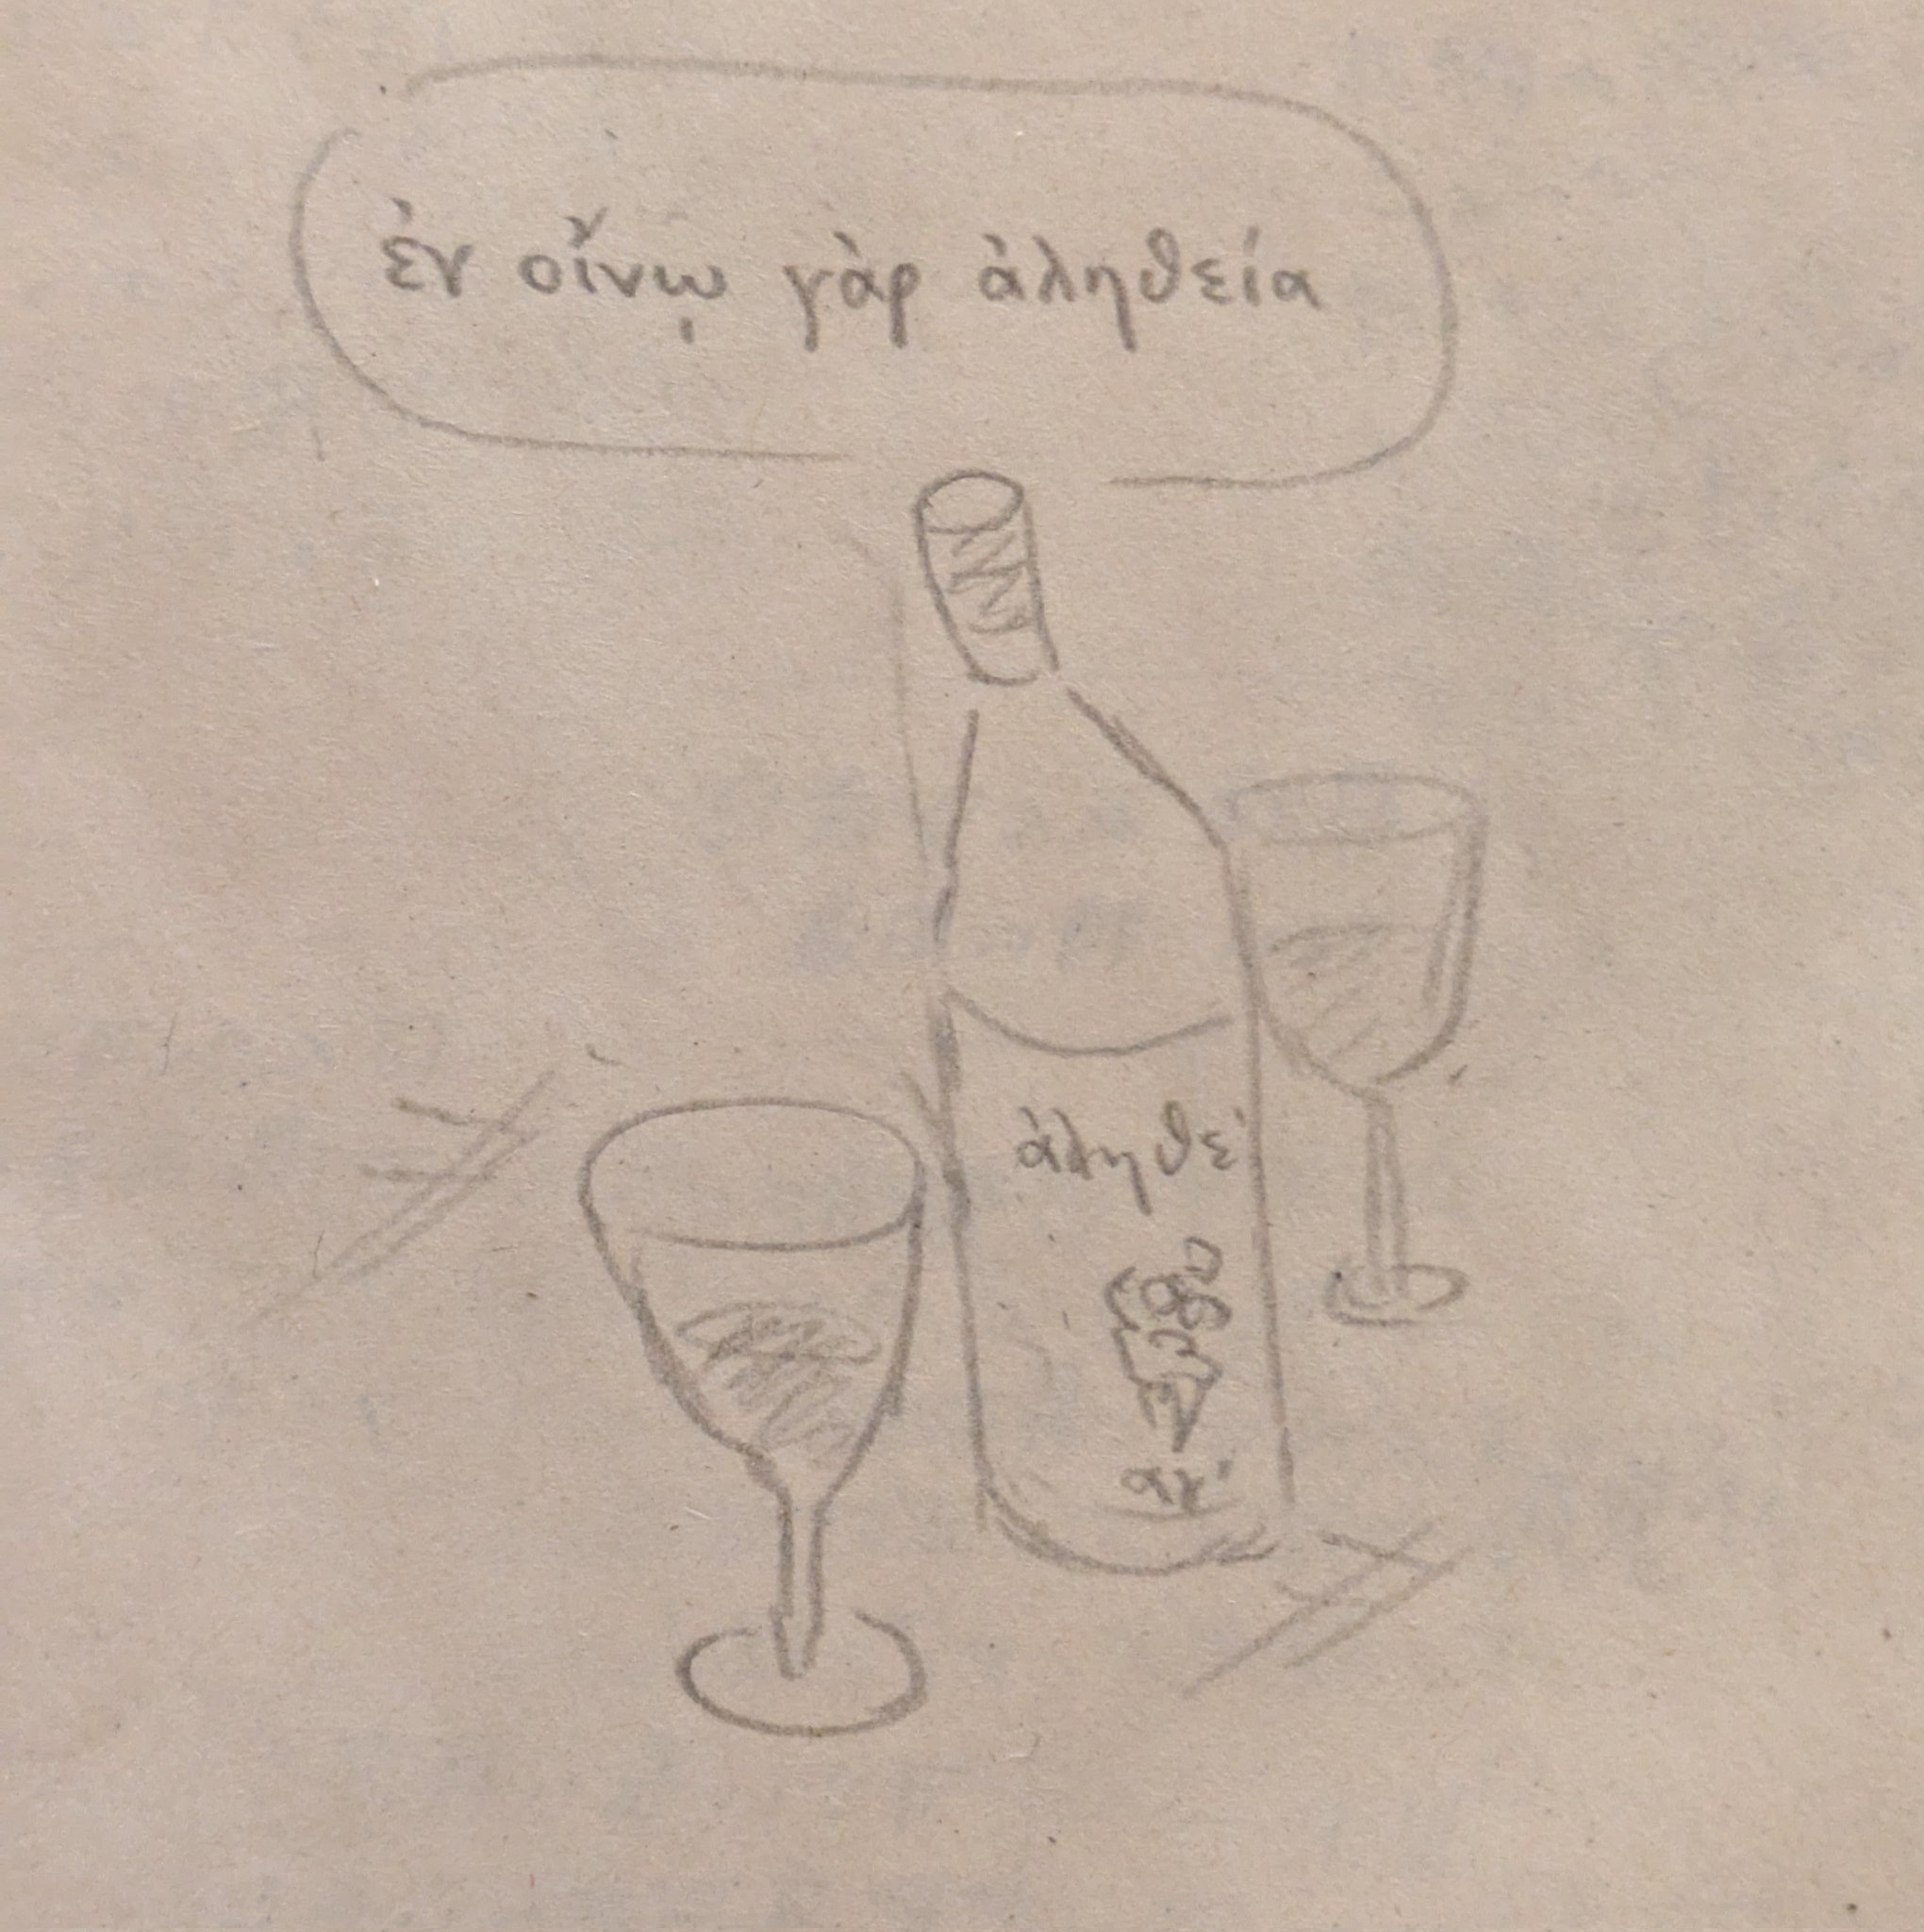 ἐν οἴνῳ γὰρ ἀληθεία
ἀληθεί
ακ'